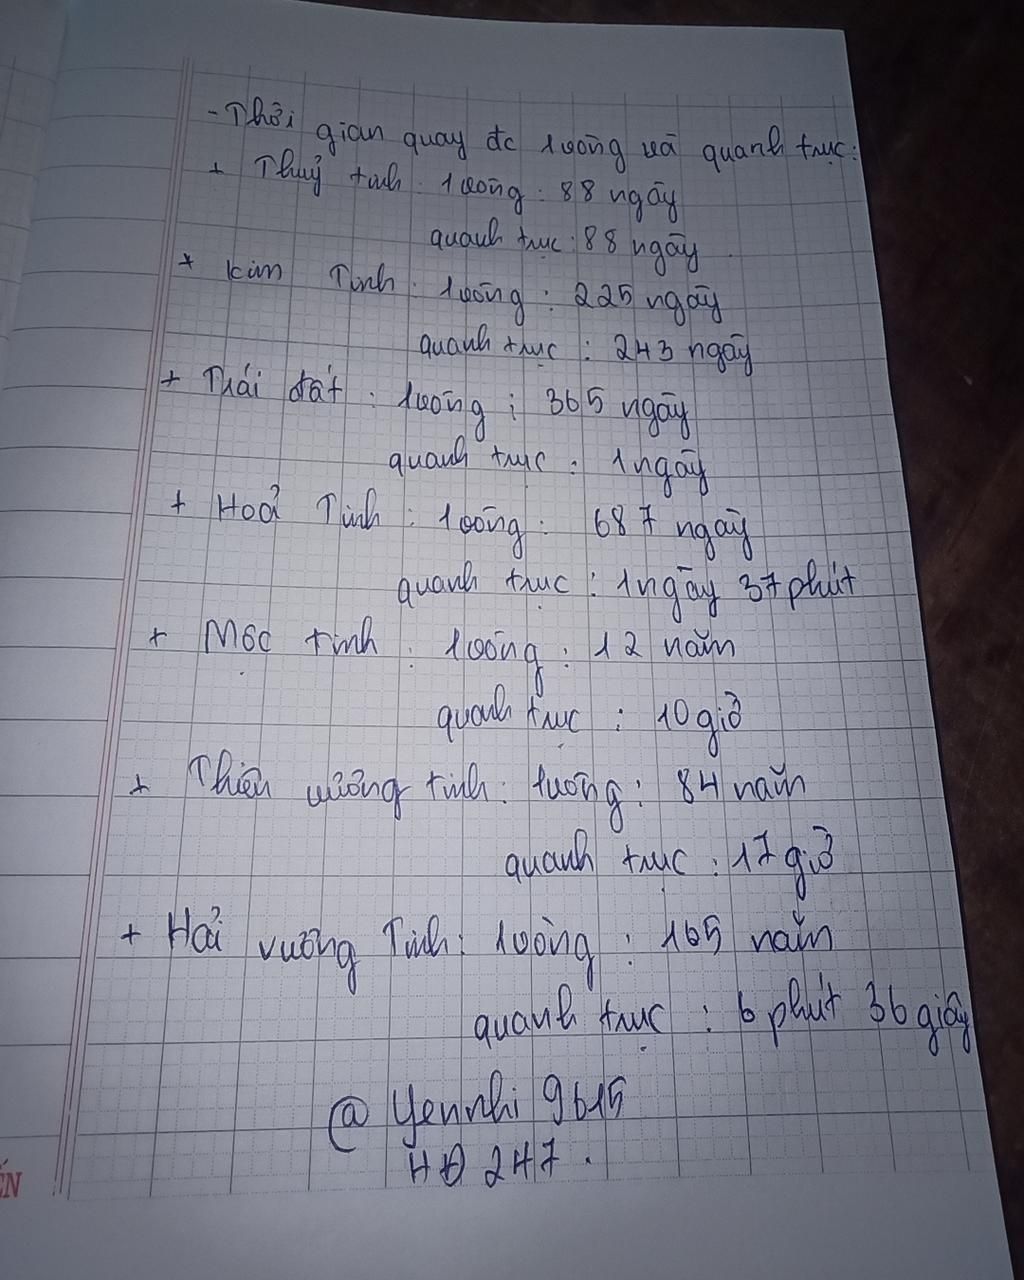 - Thời gian quay đc 1 vòng và quanh trục:
+ Thuỷ tinh : 1 vòng : 88 ngày
quanh trục : 88 ngày
+ Kim Tinh : 1 vòng : 225 ngày
quanh trục : 243 ngày
+ Trái đất : 1 vòng : 365 ngày
quanh trục : 1 ngày
+ Hoả Tinh : 1 vòng : 687 ngày
quanh trục : 1 ngày 37 phút
+ Mộc tinh : 1 vòng : 12 năm
quanh trục : 10 giờ
+ Thiên vương tinh : 1 vòng : 84 năm
quanh trục : 17 giờ
+ Hải vương Tinh : 1 vòng : 165 năm
quanh trục : 6 phút 36 giây
@ Yennhi 9615
HĐ 247 .
ẾN